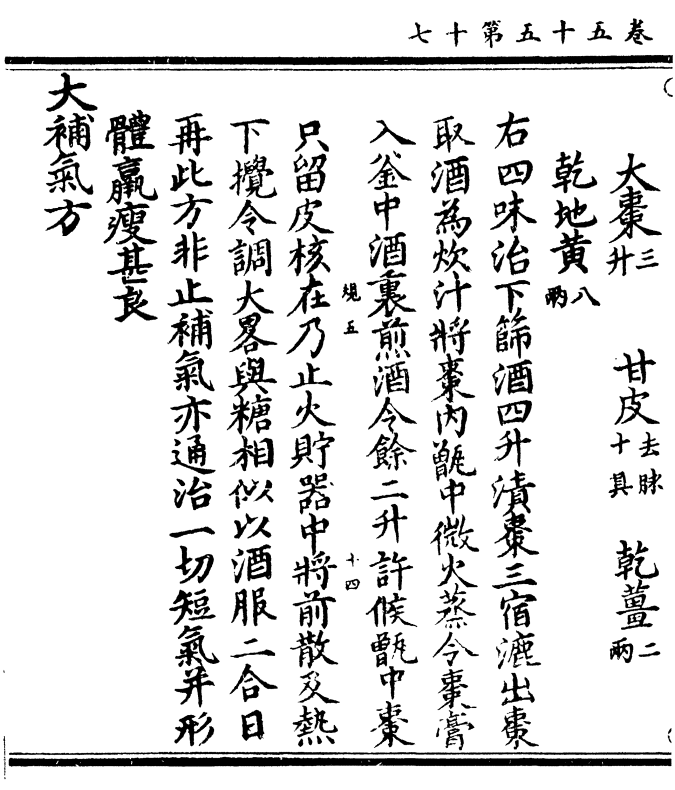 卷五十五第十七
大棗三升 甘皮去脉十具 乾薑二兩
乾地黄八兩
右四味治下篩酒四升漬棗三宿漉出棗
取酒為炊汁將棗內甑中微火蒸令棗膏
入釜中酒裏煎酒令餘二升許候甑中棗
規五
十四
只留皮核在乃止火貯器中將前散及熱
下攪令調大畧與糖相似以酒服二合日
再此方非止補氣亦通治一切短氣并形
體羸瘦甚良
大補氣方